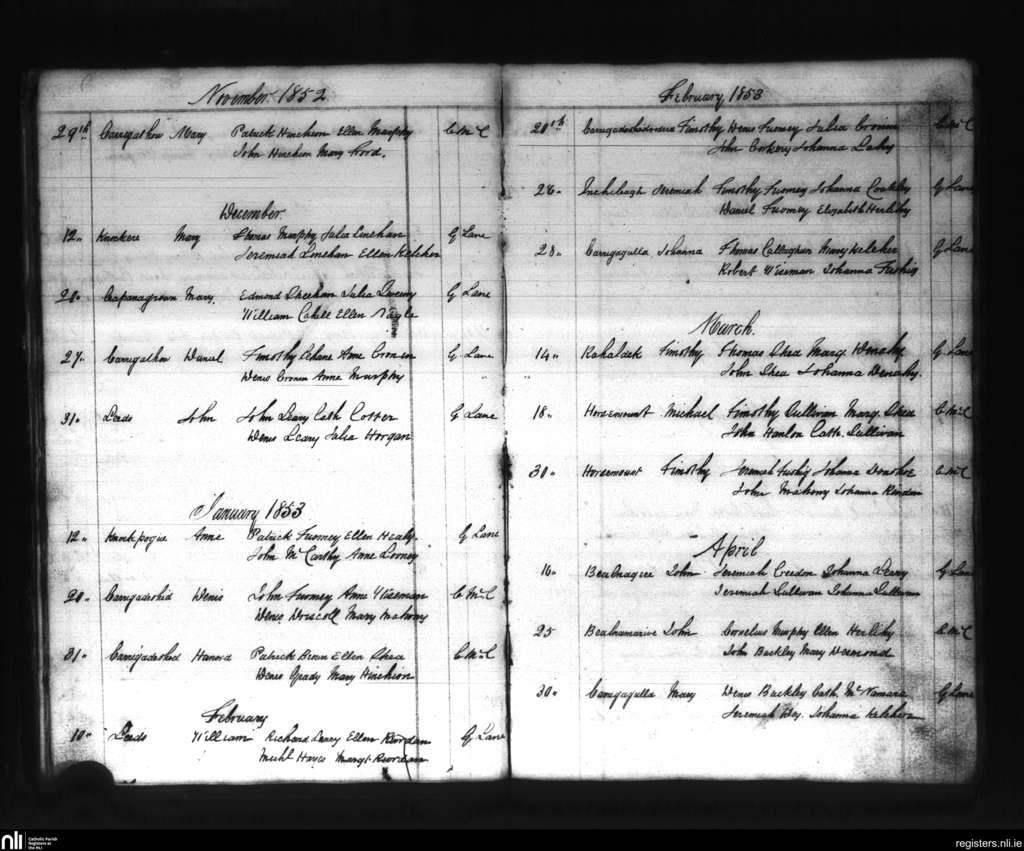 November 1852
29th Carrigathou Mary Patrick Hinchion Ellen Murphy C McC
John Hinchion Mary Ford.
December
12 " Knockere Mary Thomas Murphy Julia Linehan G Lane
Jeremiah Linehan Ellen Kelcher
20 " Capanagroun Mary. Edmond Sheehan Julia Sweeny G Lane
William Cahill Ellen Nagle
27 " Carrigathou Daniel Timothy Lehane Anne Cronin G. Lane
Denis Cronin Anne Murphy
31 " Leads John John Leary Cath Cotter G Lane
Denis Leary Julia Horgan
January 1853
12 " Knockpogue Anne Patrick Twomey Ellen Healy. G Lane
John McCarthy Anne Looney
20 " Carrigadrohid Denis John Twomey Anne Wiseman C McC
Denis Driscoll Mary Mahony
31 " Carrigadrohid Hanora Patrick Ellen Shea C McC
Denis Grady Mary Hinchion
February
10 " Leads William Richard Leary Ellen Riordan G Lane
Michl Hayes Margt Riordan
February 1853
20th Timothy Denis Twomey Julia Cronin C McC
John Corkery Johanna Leahy
26 " Inchileagh Jeremiah Timothy Twomey Johanna Coakley G Lane
Daniel Twomey Elizabeth Herlihy
28 " Carrigagulla Johanna Thomas Callaghan Mary Kelcher G Lane
Robert Wiseman Johanna Tuohig
March.
14 " Rahalisk Timothy Thomas Shea Marg. Denahy G Lane
John Shea Johanna Denahy.
18 " Horsemount Michael Timothy Sullivan Marg. Shea C McC
John Hanlon Cath. Sullivan
30 " Horsemount Timothy Jeremiah Tuohig Johanna Donohoe C McC
John Mahony Johanna Riordan
April
16 " Bealnagree John Jeremiah Creedon Johanna Leary G Lane
Jeremiah Sullivan Johanna Sullivan
25 Bealnamorive John Cornelius Murphy Ellen Herlihy C McC
John Buckley Mary Desmond
30 " Carrigagulla Mary Denis Buckley Cath McNamara G Lane
Jeremiah Johanna Kelcher
nli
Catholic Parish
Registers at
the NLI
registers.nli.ie